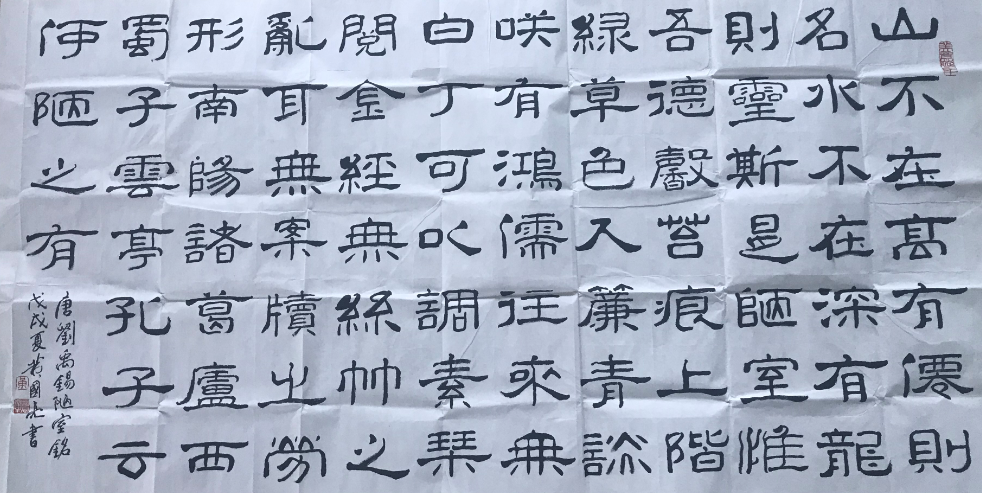 山不在髙有僊則
名水不在深有龍
則靈斯是陋室惟
吾德馨苔痕上階
綠草色入簾青談
咲有鴻儒往來無
白丁可以調素琴
閱金經無絲竹之
亂耳無案牘之勞
形南陽諸葛廬西
蜀子雲亭孔子云
何陋之有
唐劉禹錫陋室銘
戊戌夏黃國光書